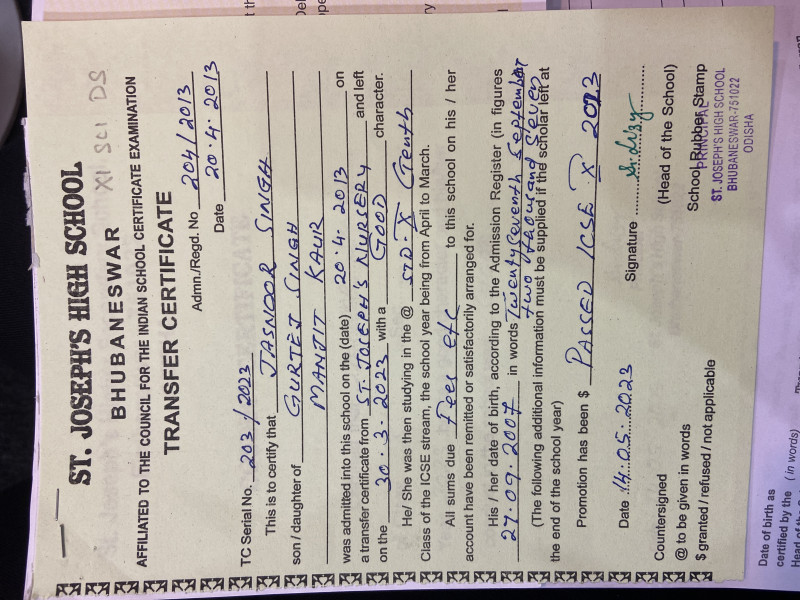 XI SCI DS
ST. JOSEPH'S HIGH SCHOOL
BHUBANESWAR
AFFILIATED TO THE COUNCIL FOR THE INDIAN SCHOOL CERTIFICATE EXAMINATION
TRANSFER CERTIFICATE
Admn./Regd. No 204/2013
Date 20.4.2013
TC Serial No. 203/2023
This is to certify that JASNOOR SINGH
son / daughter of GURTEJ SINGH
MANJIT KAUR
was admitted into this school on the (date) 20.4.2013 on
a transfer certificate from ST. JOSEPH'S NURSERY and left
on the 30.3.2023 with a GOOD character.
He/ She was then studying in the @ STD-X (Tenth
Class of the ICSE stream, the school year being from April to March.
All sums due Fees etc to this school on his / her
account have been remitted or satisfactorily arranged for.
His / her date of birth, according to the Admission Register (in figures
27.09.2007 in words Twenty seventh September
two thousand seven
(The following additional information must be supplied if the scholar left at
the end of the school year)
Promotion has been $ PASSED ICSE - X 2023
Date 14.05.2023
Signature
Countersigned (Head of the School)
@ to be given in words School Rubber Stamp
$ granted / refused / not applicable
PRINCIPAL
ST. JOSEPH'S HIGH SCHOOL
BHUBANESWAR-751022
ODISHA
Date of birth as
certified by the (in words)